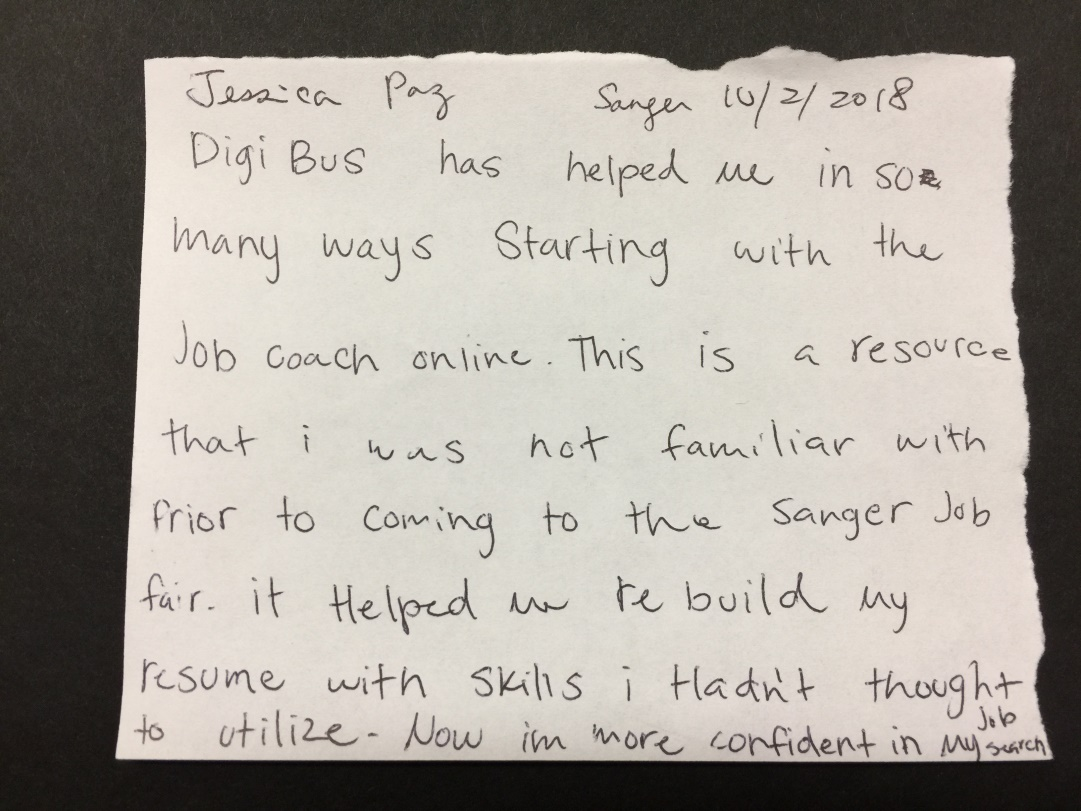 Jessica Paz Sanger 10/2/2018
Digi Bus has helped me in so
many ways Starting with the
Job coach online. This is a resource
that i was not familiar with
Prior to coming to the Sanger Job
fair. it Helped me re build My
resume with skills i Hadn't thought
to utilize. Now im more confident in My job search